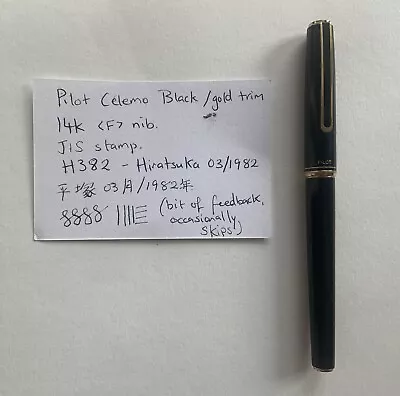 Pilot Celemo Black/gold trim
14k <F> nib.
JIS stamp.
H382 - Hiratsuka 03/1982
平塚 03月/1982年
(bit of feedback,
occasionally
skips)
PILOT